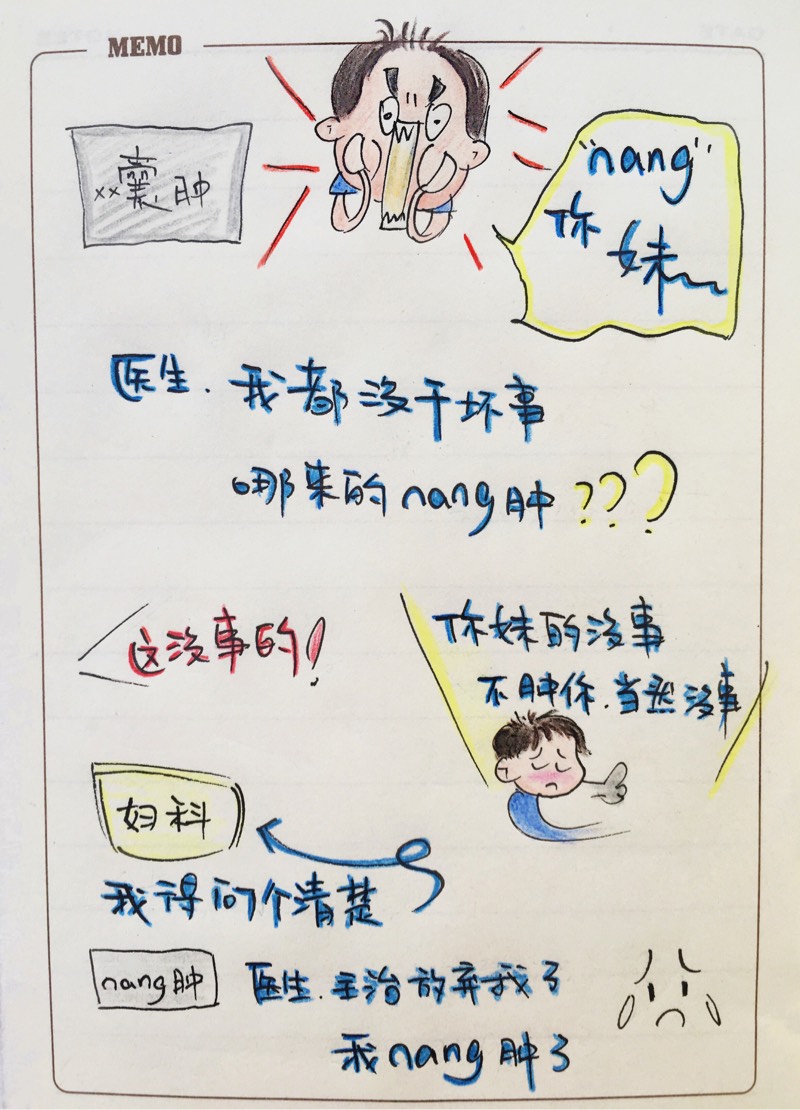 MEMO
××囊肿
"nang"
你
妹~~
医生.我都没干坏事
哪来的nang肿???
这没事的!
你妹的没事
不肿你.当然没事
妇科
我得问个清楚
nang肿
医生.主治放弃我了
我nang肿了